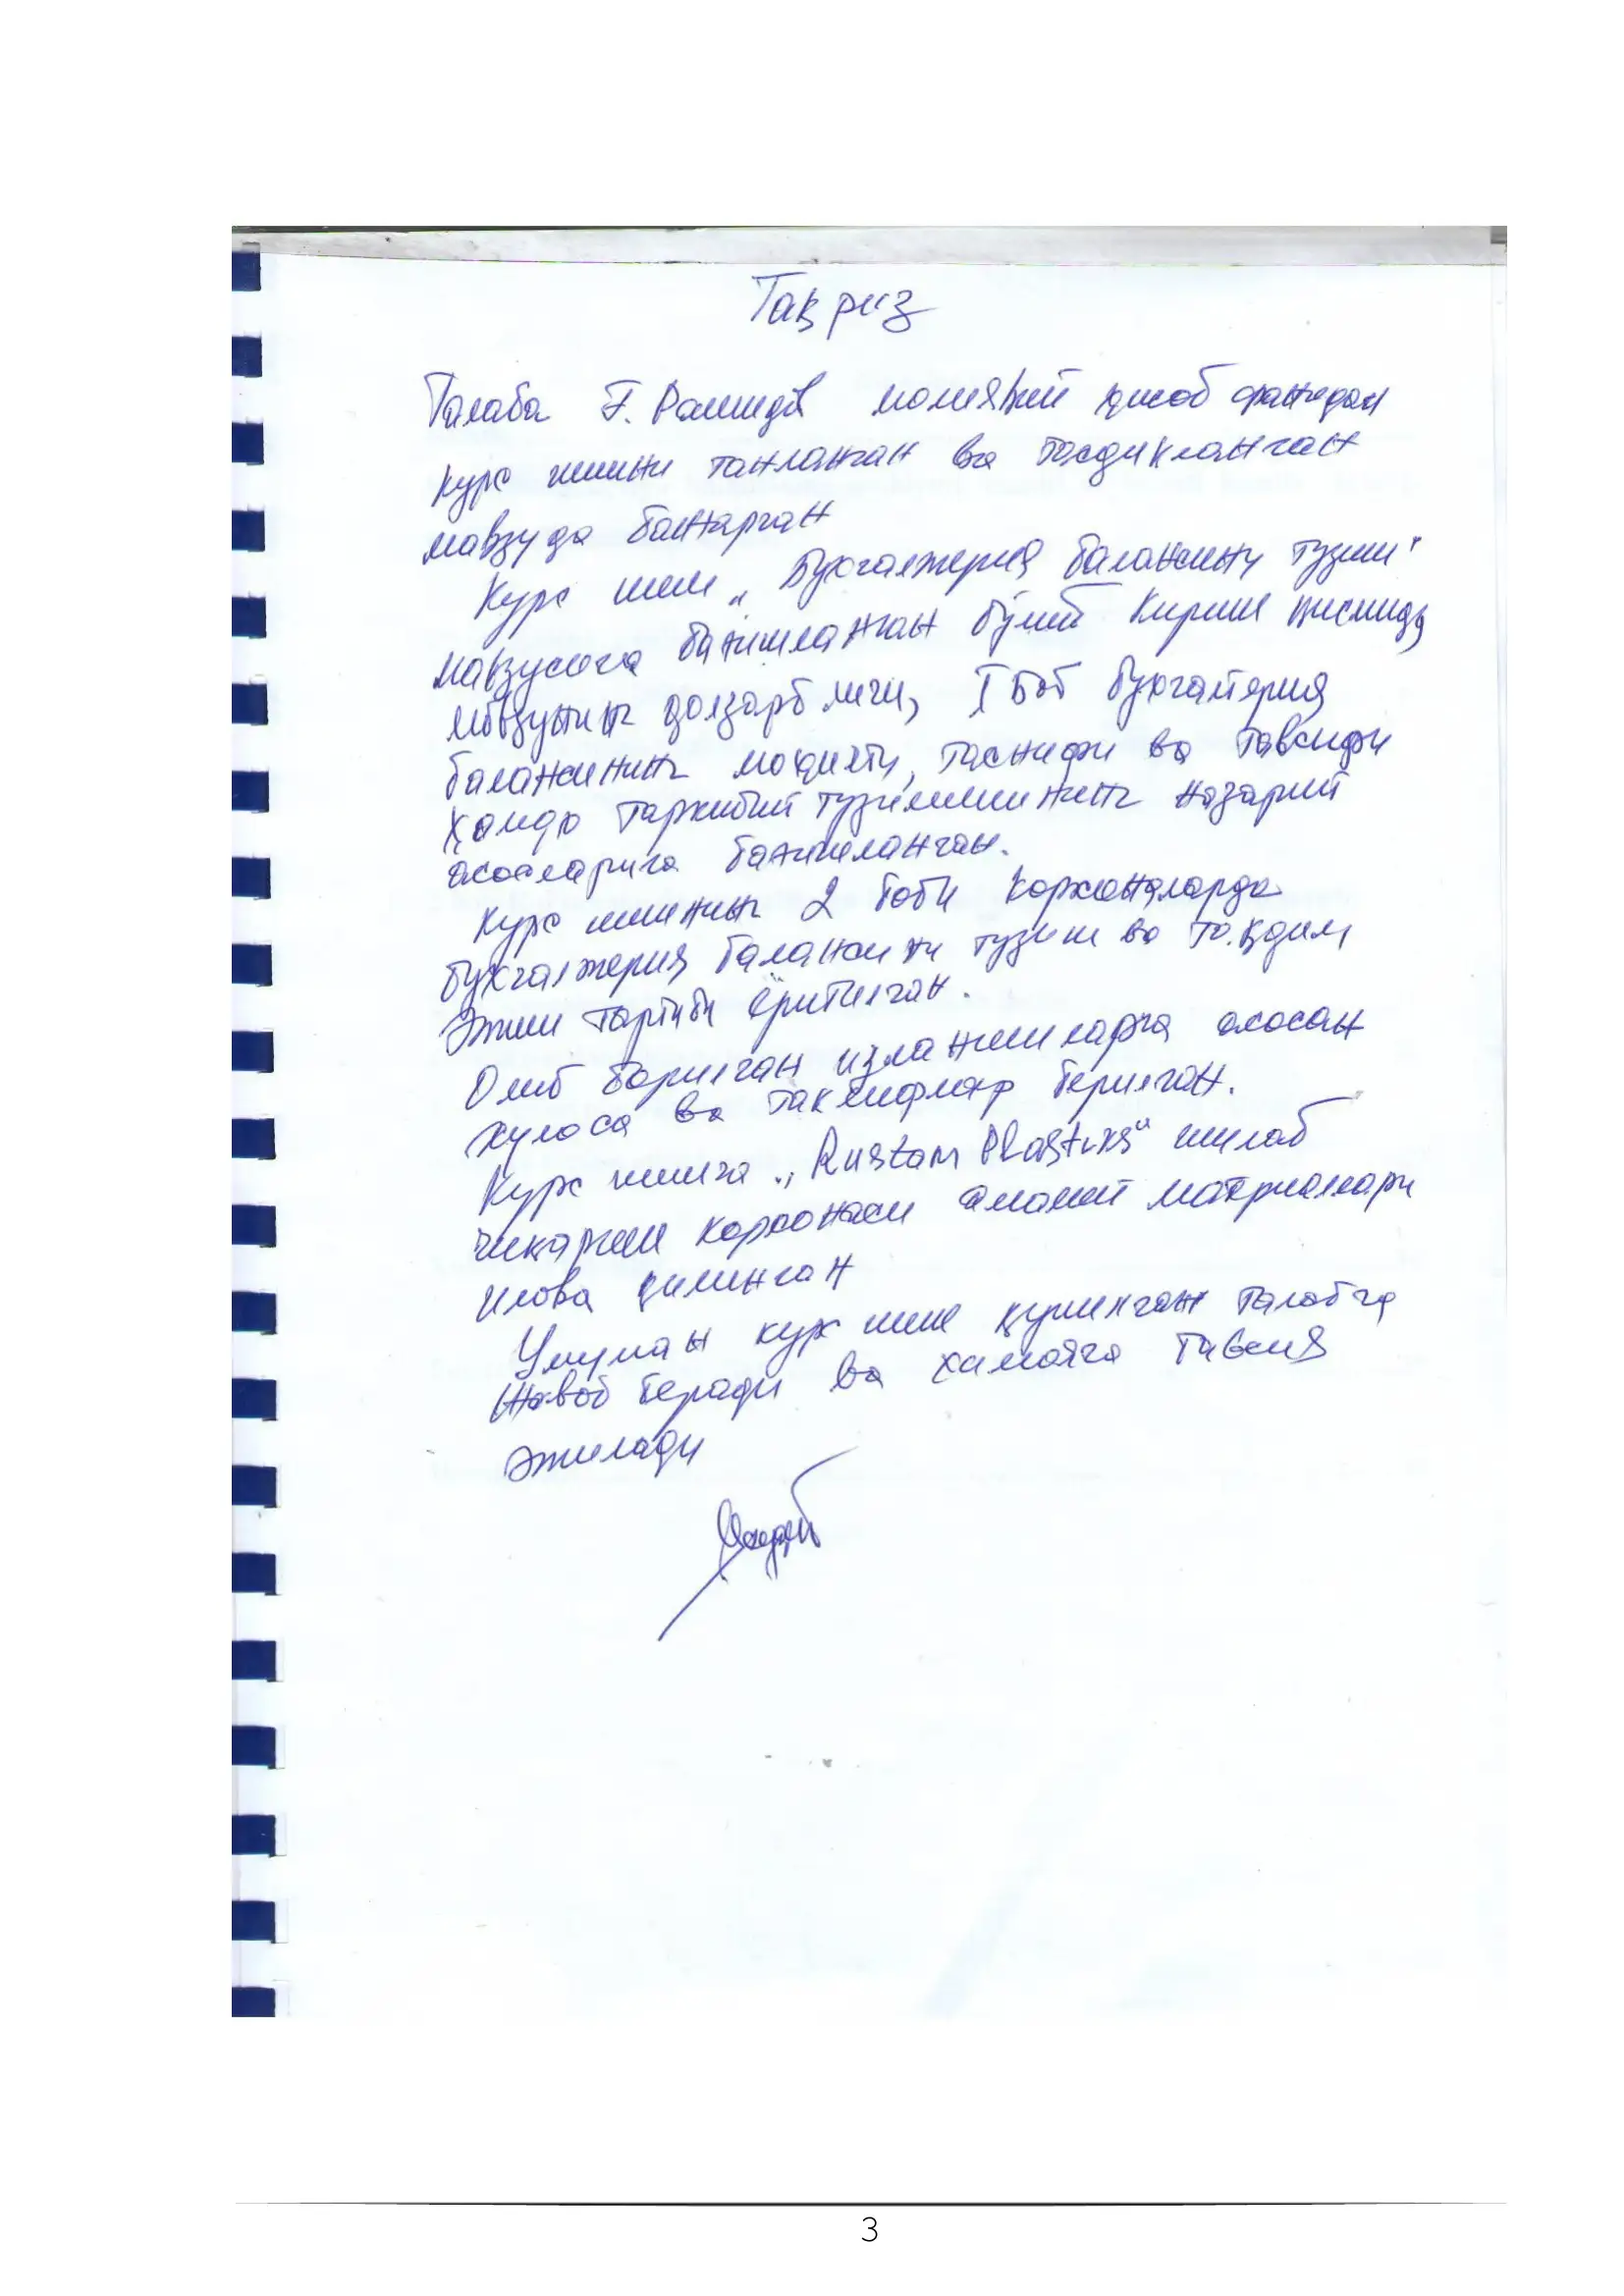 Тақриз
Талаба Ғ. Рашидов молиявий ҳисоб фанидан
курс ишини танланган ва тасдикланган
мавзуда бажарган
Курс иши „Бухгалтерия балансини тузиш"
мавзусига бағишланган бўлиб Кириш қисмида
мавзунинг долзарблиги, I боб бухгалтерия
балансининг моҳияти, таснифи ва тавсифи
ҳамда таркибий тузилишининг назарий
асосларига бағишланган.
Курс ишининг 2 боби корхоналарда
бухгалтерия балансини тузиш ва тақдим
этиш тартиби ёритилган.
Олиб борилган изланишларга асосан
хулоса ва таклифлар берилган.
Курс ишига „Rustam Plastiks" ишлаб
чиқариш корхонаси амалий материаллари
илова қилинган
Умуман курс иши қўйилган талабга
жавоб беради ва ҳимояга тавсия
этилади
3